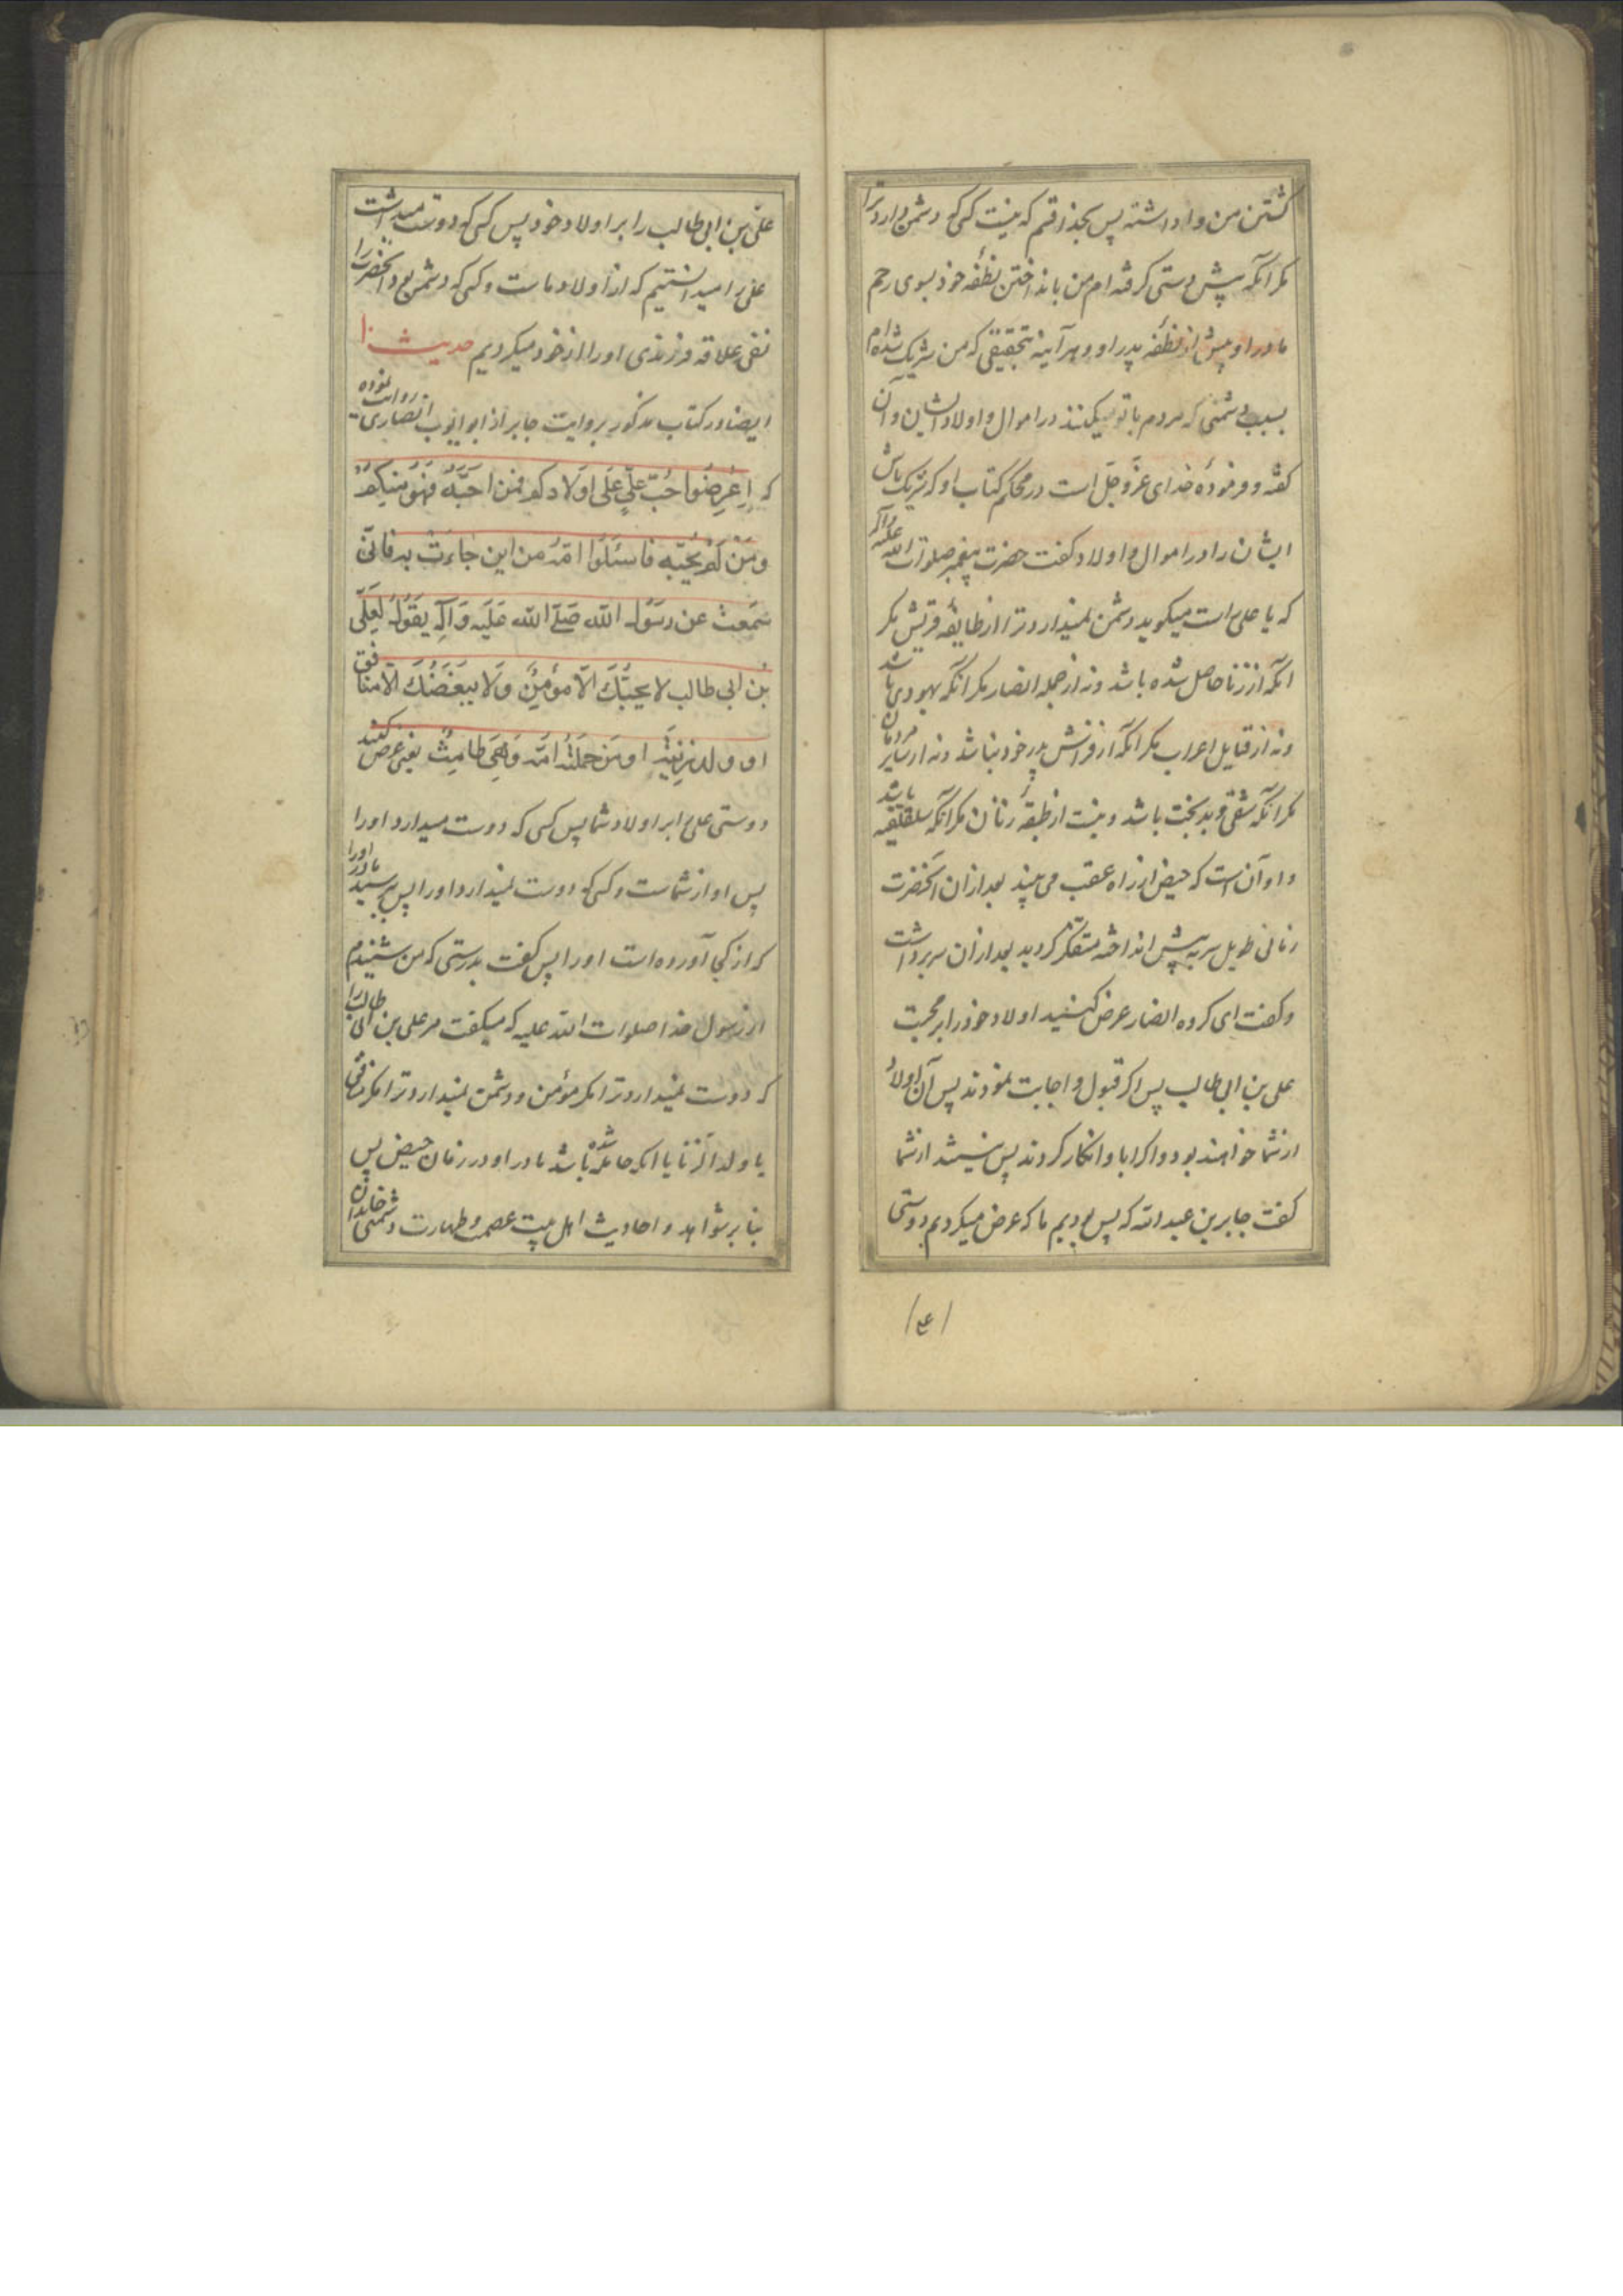 کشتن من وا داشته پس بخدا قسم که نیست کسی که دشمن دارد ترا
مکر آنکه پیش دستی کرفته ام من بانداختن نطفه خود بسوی رحم
مادر او پیش از نطفه پدر او و هر آینه بتحقیق که من شریک شده ام
بسبب دشمنی که مردم با تو میکنند در اموال و اولاد ایشان و آن
کفته و فرموده خدای عز و جل است در محکم کتاب او که شریک باش
ایشان را در اموال و اولاد کفت حضرت پیغمبر صلوات الله علیه و آله
که یا علی راست میکوید دشمن نمیدارد ترا از طایفه قریش مکر
آنکه از زنا حاصل شده باشد و نه از جمله انصار مکر آنکه یهودی باشد
و نه از قبایل اعراب مکر آنکه از فراش پدر خود نباشد و نه از سایر مردمان
مکر آنکه شقی و بدبخت باشد و نیست از طبقه زنان مکر آنکه سلقلقیه باشد
و او آن است که حیض از راه عقب می بیند بعد از آن آنحضرت
زمانی طویل سر به پیش انداخته متفکر کردید بعد از آن سر برداشت
و کفت ای کروه انصار عرض کنید اولاد خود را بر محبت
علی بن ابی طالب پس اکر قبول و اجابت نمودند پس آن اولاد
از شما خواهند بود و اکر ابا و انکار کردند پس نیستند از شما
کفت جابر بن عبد الله که پس بودیم ما که عرض میکردیم دوستی
علی بن ابی طالب را بر اولاد خود پس کسی که دوست میداشت
علی را میدانستیم که از اولاد ماست و کسی که دشمن بود آنحضرت را
نفی علاقه فرزندی او را از خود میکردیم حدیث
ایضا در کتاب مذکور بروایت جابر از ابو ایوب انصاری روایت نموده
که اعرضوا حُبَّ علیٍّ عَلَی اَوْلادکم فمن احَبَّه فَهُوَ مِنکُم
وَمَن لَم یُحِبّه فاسئلوا امَّه من این جاءت به فانّی
سَمِعتُ عن رسُول الله صَلّی الله عَلَیه وَآلِه یَقُولُ لِعَلّی
بن ابی طالب لا یُحِبُّکَ الّا مُؤمِنٌ وَلا یبغضُکَ الّا منافق
او ولد زِنیَةٍ او مَن حَمَلَتهُ امّه وَهِیَ طامِثٌ یعنی عرض کنید
دوستی علی را بر اولاد شما پس کسی که دوست میدارد او را
پس او از شماست و کسی که دوست نمیدارد او را پس بپرسید مادر او را
که از کجا آورده است او را پس کفت بدرستی که من شنیدم
از رسول خدا صلوات الله علیه که میکفت مر علی بن ابی طالب را
که دوست نمیدارد ترا مکر مؤمن و دشمن نمیدارد ترا مکر منافق
یا ولد الزنا یا آنکه حامله شده باشد مادر او در زمان حیض پس
بنابر شواهد و احادیث اهل بیت عصمت و طهارت دشمنی خاندان